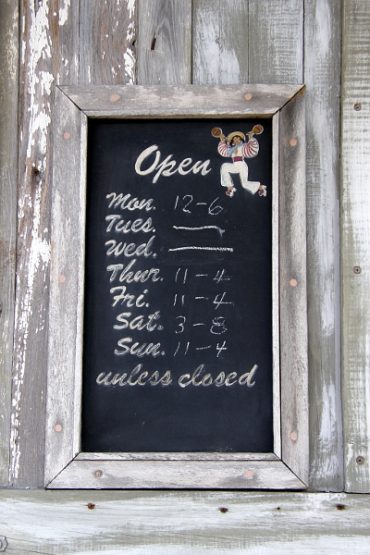 Open
Mon. 12-6
Tues. —
Wed. —
Thur. 11-4
Fri. 11-4
Sat. 3-8
Sun. 11-4
unless closed